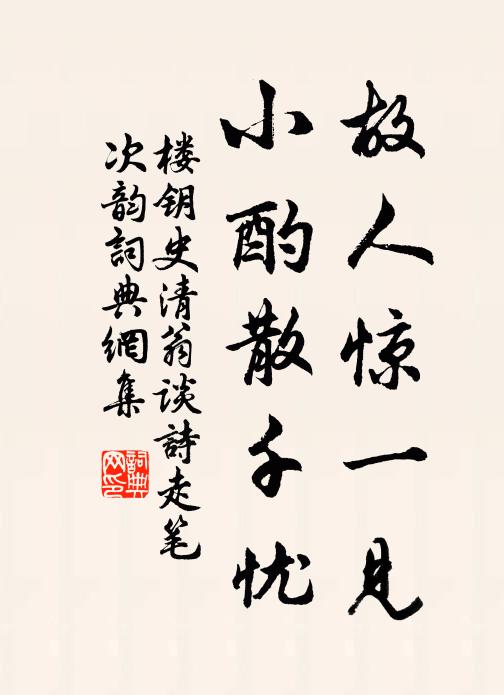 故人惊一见
小酌散千忧
楼钥史清翁谈詩走笔
次韵詞典網集
詞典网印